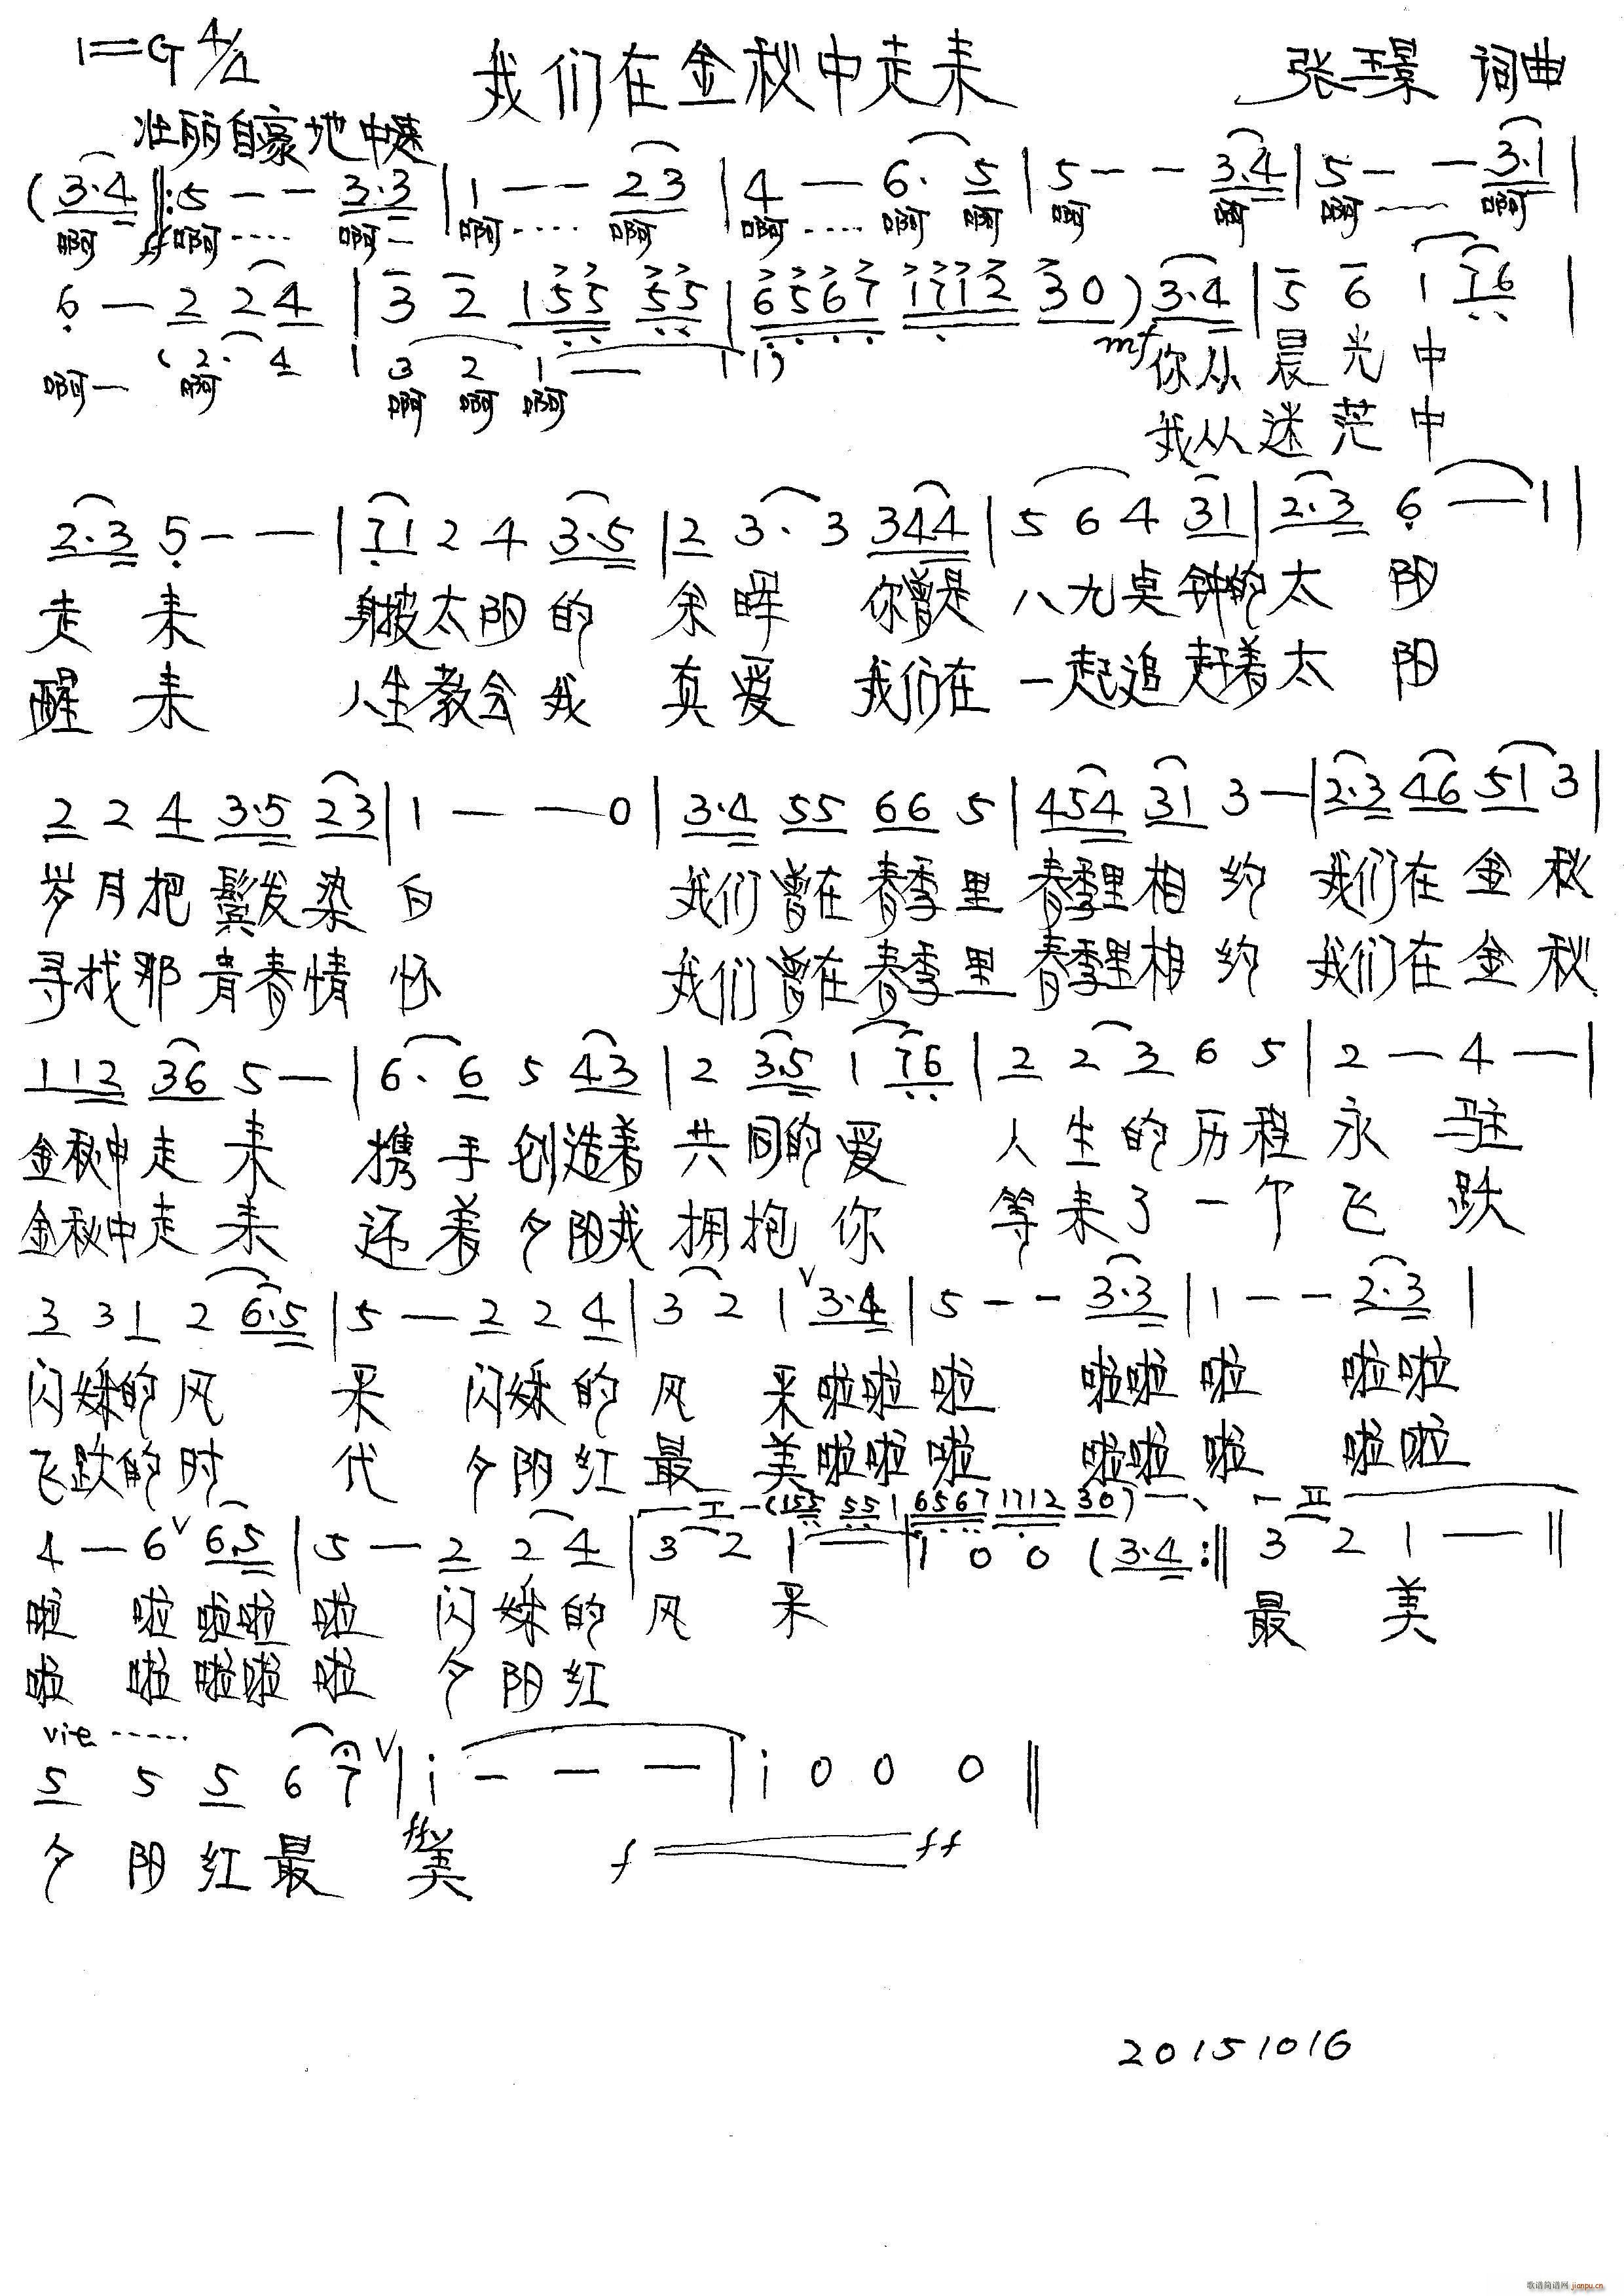 1=G 4/4 我们在金秋中走来 张玉景 词曲
壮丽自豪地 中速
(3·4 ‖:5 - - 3·3 | 1 - - 23 | 4 - 6· 5 | 5 - - 3·4 | 5 - - 3·1 |
啊 ff啊····· 啊- 啊····· 啊 啊····· 啊 啊 啊 啊 啊······ 啊
6 - 2 2 4 | 3 2 155 55 | 6567 1712 30 ) 3·4 | 5 6 1 76 |
(2· 4 | 3 2 1 - | 1)
啊- 啊 啊 啊 啊
mf你从 晨光中
我从迷茫中
2·3 5 - - | 71 2 4 3·5 | 2 3· 3 344 | 5 6 4 31 | 2·3 6 - 1 |
走来 身披太阳的 余晖 你曾是 八九点钟的太阳
醒来 人生教会我 真爱 我们在 一起追赶着太阳
2 2 4 3·5 23 | 1 - - 0 | 3·4 55 66 5 | 454 31 3 - | 2·3 46 51 3 |
岁月把鬓发染白 我们曾在春季里 春季里相约 我们在金秋
寻找那青春情怀 我们曾在春季里 春季里相约 我们在金秋
112 36 5 - | 6· 6 5 43 | 2 3·5 1 76 | 2 2 3 6 5 | 2 - 4 - |
金秋中走来 携手创造着 共同的爱 人生的历程 永驻
金秋中走来 还着夕阳我 拥抱你 等来了一个 飞跃
3 31 2 6·5 | 5 - 2 2 4 | 3 2 1 V 3·4 | 5 - - 3·3 | 1 - - 2·3 |
闪烁的风采 闪烁的风采 啦啦啦 啦啦啦 啦啦
飞跃的时代 夕阳红最美 啦啦啦 啦啦啦 啦啦
I (155 55 | 6567 1712 30) II
4 - 6 V 6·5 | 5 - 2 2 4 | 3 2 1 - | 1 0 0 (3·4 :‖ 3 2 1 - ‖
啦 啦啦啦啦 闪烁的风采 最美
啦 啦啦啦啦 夕阳红
vit ······
5 5 5 6 7 V | i - - - | i 0 0 0 ‖
夕阳红最 美 f ff
20151016
歌谱简谱网 jianpu.cn